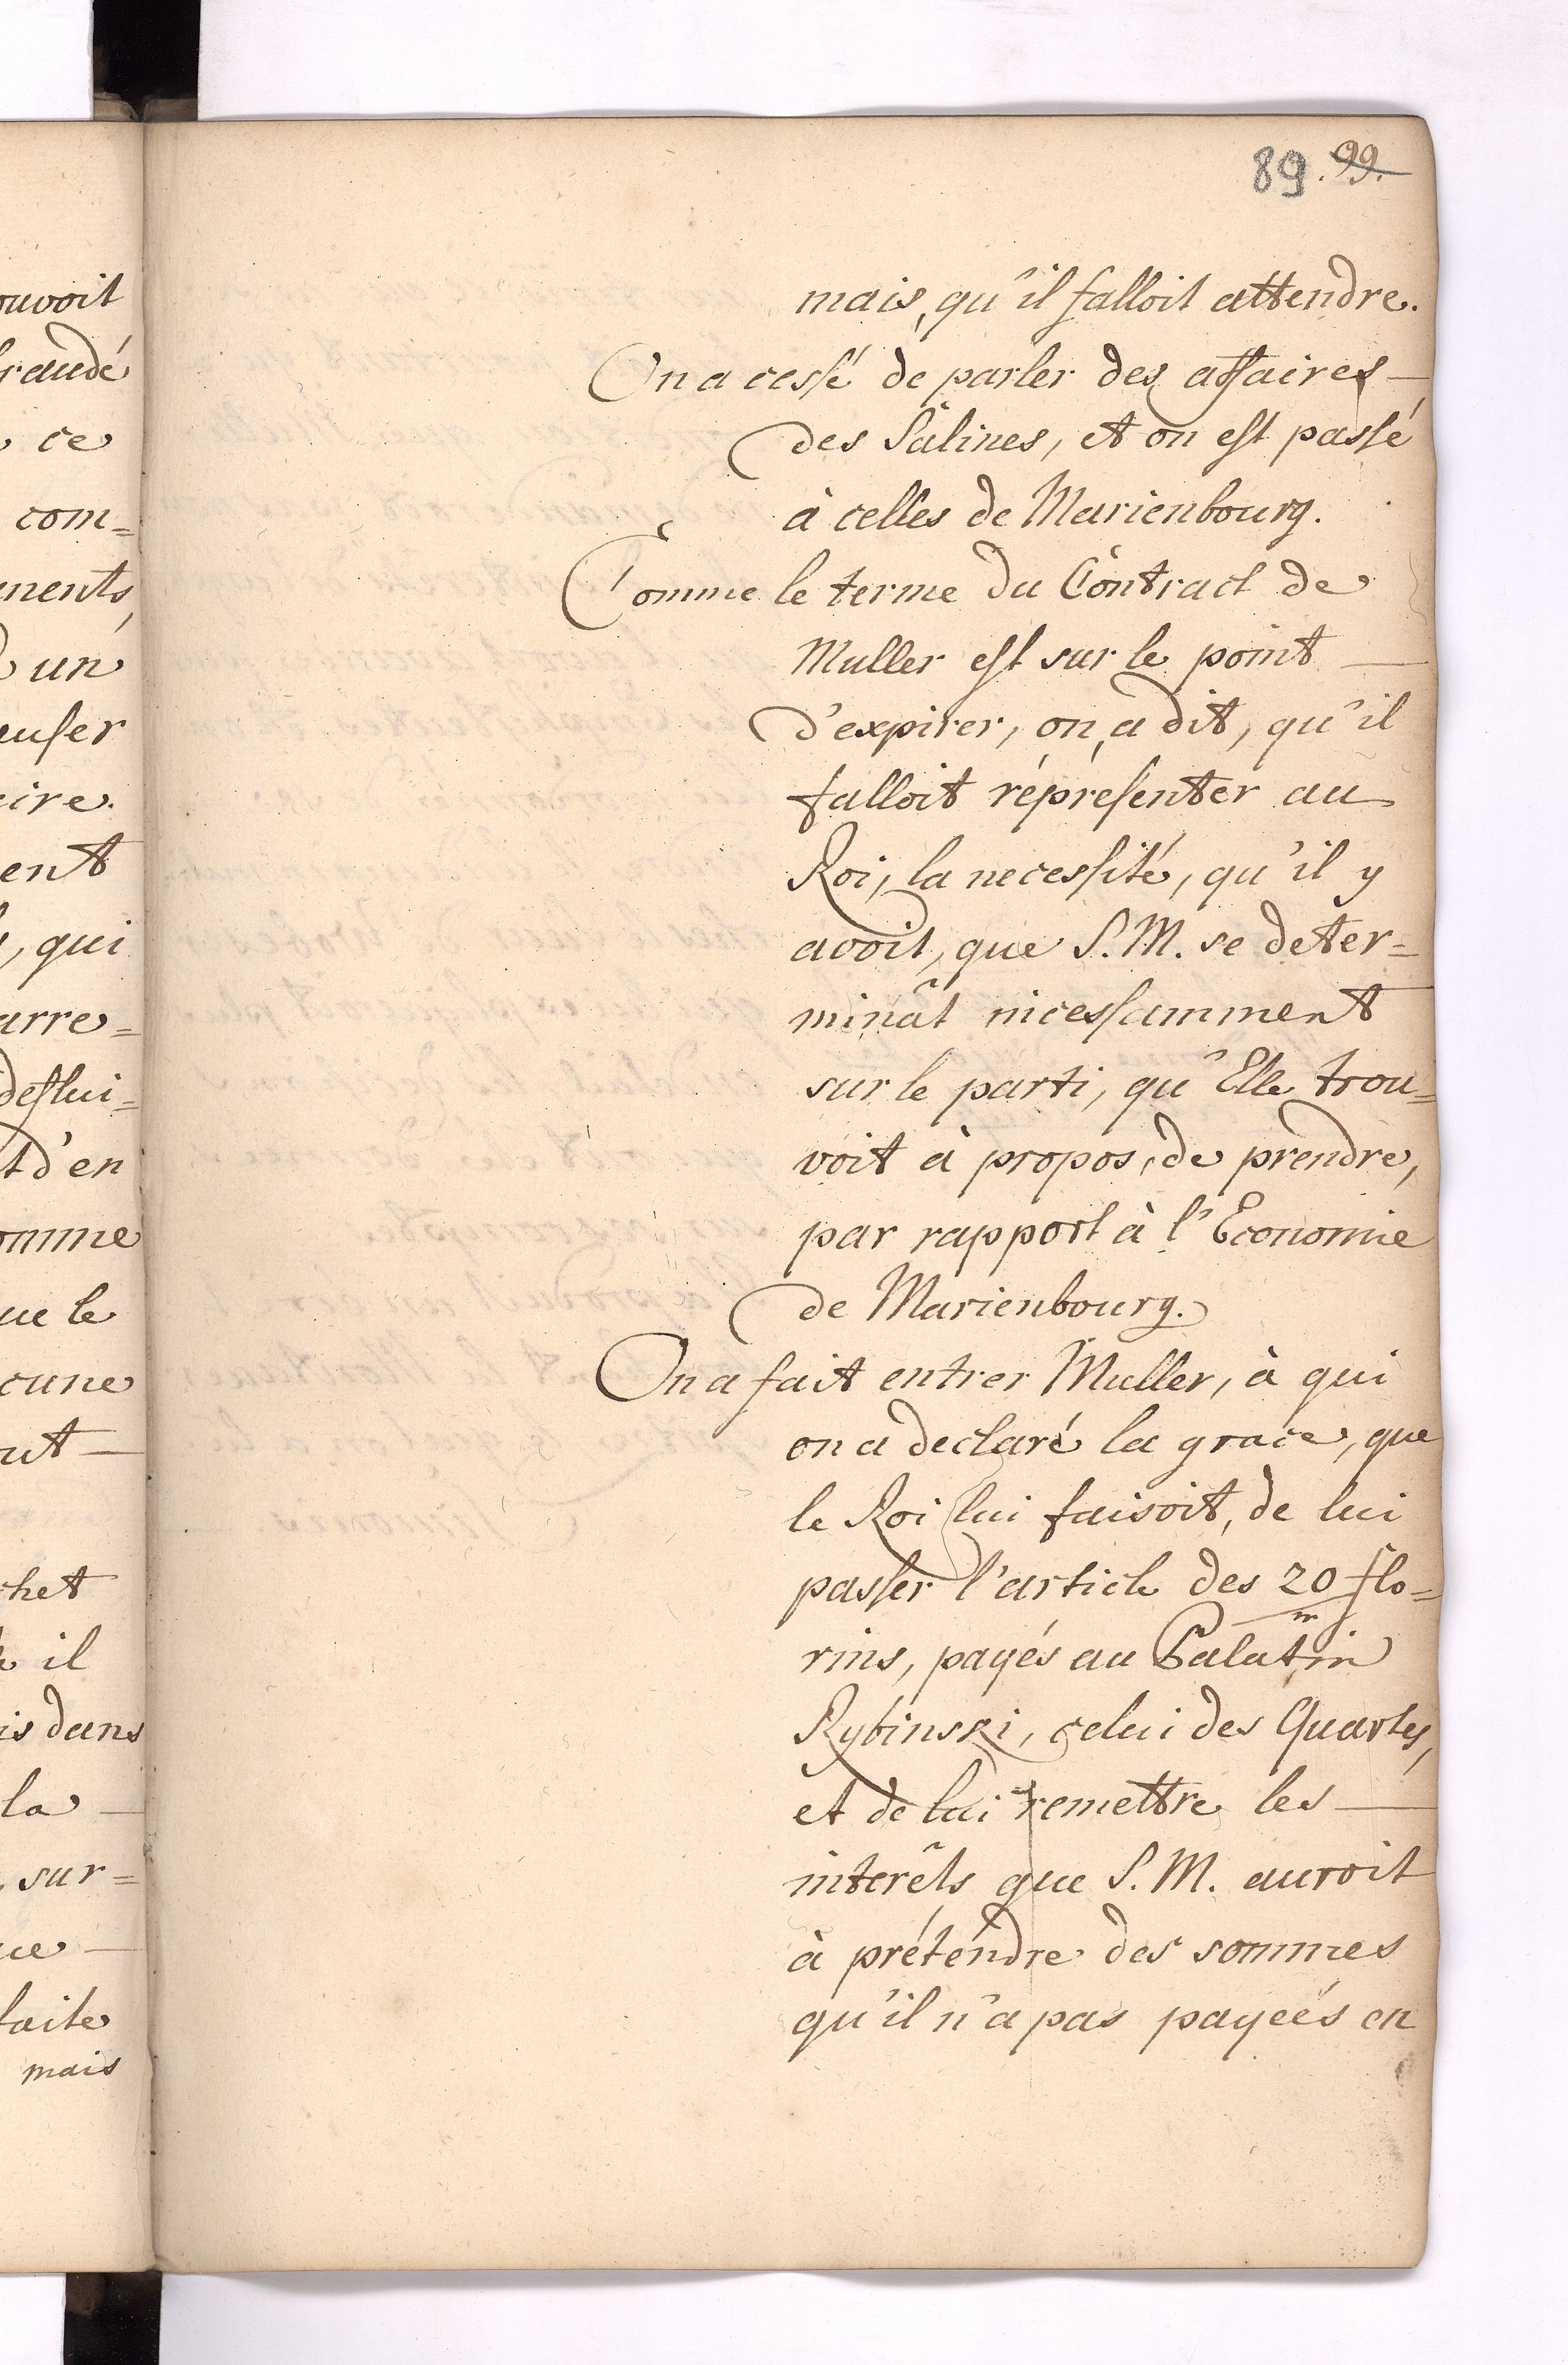 89. 99.
mais, qu'il falloit attendre.
On a cessé de parler des affaires
des Salines, et on est passé
à celles de Marienbourg.
Comme le terme du Contract de
Muller est sur le point
d'expirer, on a dit, qu'il
falloit réprésenter au
Roi, la necessité, qu'il y
avoit, que S. M. se deter=
minât incessamment
sur le parti, qu'Elle trou=
voit à propos, de prendre,
par rapport à l'Economie
de Marienbourg.
On a fait entrer Muller, à qui
on a declaré la grace, que
le Roi lui faisoit, de lui
passer l'article des 20 flo=
m
rins, payés au Palatin
Rybinski, celui des Quartes,
et de lui remettre les
interêts que S. M. auroit
à prétendre des sommes
qu'il n'a pas payeés en
ouvoit
fraudé
ce
com=
ments,
un
euser
ent
, qui
arre=
deslui=
t d'en
omme
ue le
cune
ut
chet
il
is dans
la
sur=
ue
faite
mais